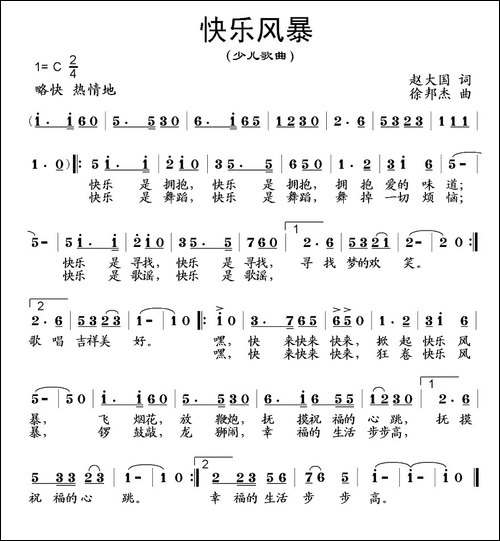 快乐风暴
(少儿歌曲)
1=C 2/4
略快 热情地
赵大国 词
徐邦杰 曲
(i. i 6 0 | 5. 5 3 0 | 6. i 6 5 | 1 2 3 0 | 2. 6 | 5 3 2 3 | 1 1 1 |
1. 0) |: 5 i. i | 2 i 0 | 3 5. 5 | 6 i 0 | 1. 2 | 3 i 6 | 5 - |
快乐 是 拥抱, 快乐 是 拥抱, 拥 抱 爱的 味 道;
快乐 是 舞蹈, 快乐 是 舞蹈, 舞 掉 一切 烦 恼;
5 - | 5 i. i | 2 i 0 | 3 5. 5 | 7 6 0 | 1 2. 6 | 5 3 2 1 | 2 - | 2 0 :|
快乐 是 寻找, 快乐 是 寻找, 寻 找 梦的欢 笑。
快乐 是 歌谣, 快乐 是 歌谣,
2 2. 6 | 5 3 2 3 | i - | i 0 |: i 0 | 3. 7 6 5 | 6 5 0 | i. 2 | 3 i 6 |
歌 唱 吉祥美 好。 嘿, 快 来快快 快来, 掀 起 快乐 风
嘿, 快 来快快 快来, 狂 卷 快乐 风
5 - | 5 0 | 5. i | 6 5 0 | 3. 5 | 6 5 0 | 6. i 6 | 5 5 | 1 2 3 0 | 1 2. 6 |
暴, 飞 烟花, 放 鞭炮, 抚 摸祝 福的 心 跳, 抚 摸
暴, 锣 鼓敲, 龙 狮闹, 幸 福的 生活 步步高,
5 3 3 | 2 3 | 5 - | 5 0 :| 2 2. 6 | 5 3 3 2 3 | 2. i | i - | i 0 ||
祝 福的心 跳。 幸 福的生活 步 步 高。